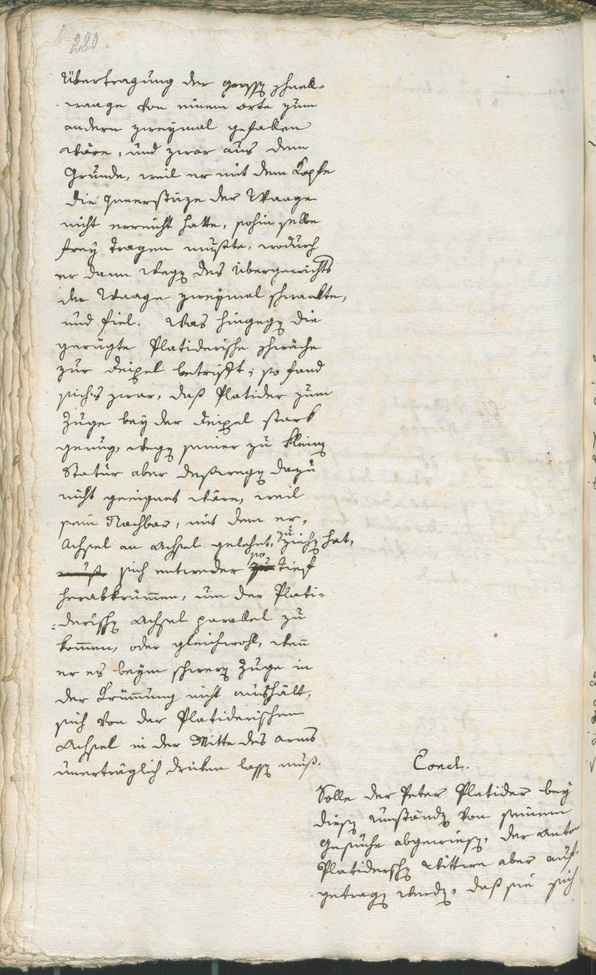 280
Übertragung der grossen schnell-
waage von einem orte zum
andern zweymal gefallen
wäre, und zwar aus dem
Grunde, weil er mit dem Kopfe
die Queerstüze der Waage
nicht erreicht hatte, sohin selbe
frey tragen mußte, wodurch
er dann wegen des Übergewichts
der Waage zweymal schwankte,
und fiel. Was hingegen die
gerügte Platiderische schwäche
zur Deixel betrifft; so fand
sichs zwar, daß Platider zum
Zuge bey der Deixel stark
genug, wegen seiner zu kleinen
Statur aber deßwegen dazu
nicht geeignet wäre, weil
sein Nachbar, mit dem er,
Achsel an Achsel gelehnt, zu ziehen hat,
sich entweder so tief
herabkrümen, um der Plati-
derischen Achsel parallel zu
komen, oder gleichwohl, wenn
er es beym schweren Zuge in
der Krümung nicht aushält,
sich von der Platiderischen
Achsel in der Mitte des Arms
unerträglich drücken lassen muß.
Concl.
Solle der Peter Platider bey
diesen Umständen von seinem
Gesuche abgewiesen, der
Platiderschen Wittwe aber auf-
getragen werden, daß sie sich